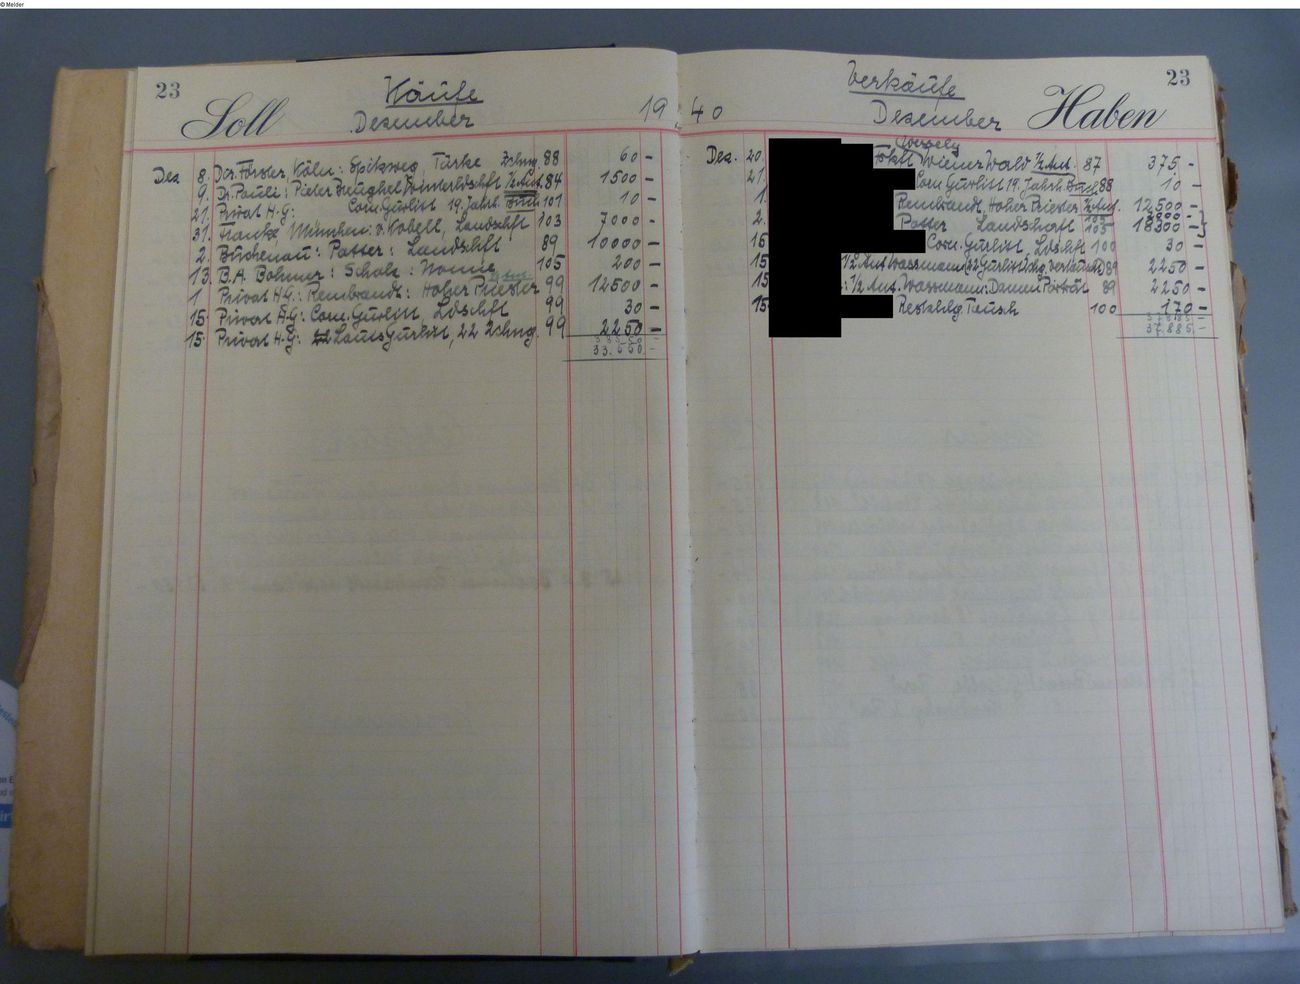 © Melder
23
Käufe
Soll
Dezember
19
Dez 8. Dir. Förster, Köln: Spitzweg Türke Zchng. 88 60 -
9. Dr. Pauli: Pieter Breughel Winterldschft 1/2 Ant. 84 1500 -
21. Privat H.G: Corn. Gurlitt 19. Jahrh. Buch 101 10 -
31. München: v. Kobell, Landschft 103 7000 -
2. Buchenau: Potter: Landschft 89 10000 -
13. B.A. Böhmer: Scholz: Nonne 105 200 -
1 Privat H.G.: Rembrandt: Hoher Priester 99 12500 -
15. Privat H.G: Corn. Gurlitt, Ldschft 99 30 -
15. Privat H.G: Louis Gurlitt, 22 Zchng. 99 2250 -
Verkäufe
23
40
Dezember
Haben
Dez. 20. Wiener Wald 1/2 Ant. 87 375.-
21. Corn. Gurlitt 19. Jahrh. Buch 88 10 -
1. Rembrandt Hoher Priester 1/2 Ant. 12500 -
2. Potter Landschaft 105 18300 -
16 Corn. Gurlitt, Ldschft 100 30 -
15 1/2 Ant. Wassmann 89 2250 -
15 : 1/2 Ant. Wassmann: Damen Porträt 89 2250 -
15 Restzahlg. Tausch 100 170 -
37.885,-